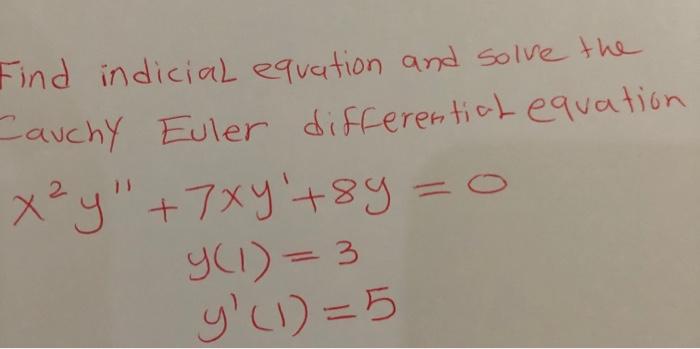 Find indicial equation and solve the
Cauchy Euler differential equation
x²y'' + 7xy' + 8y = 0
y(1) = 3
y'(1) = 5